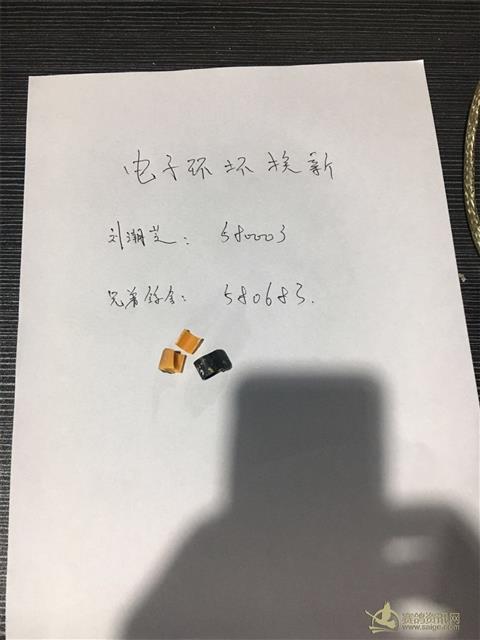 电子环坏换新
刘潮芝: 580003
兄弟鸽舍: 580683.
赛鸽资讯网
www.saige.com